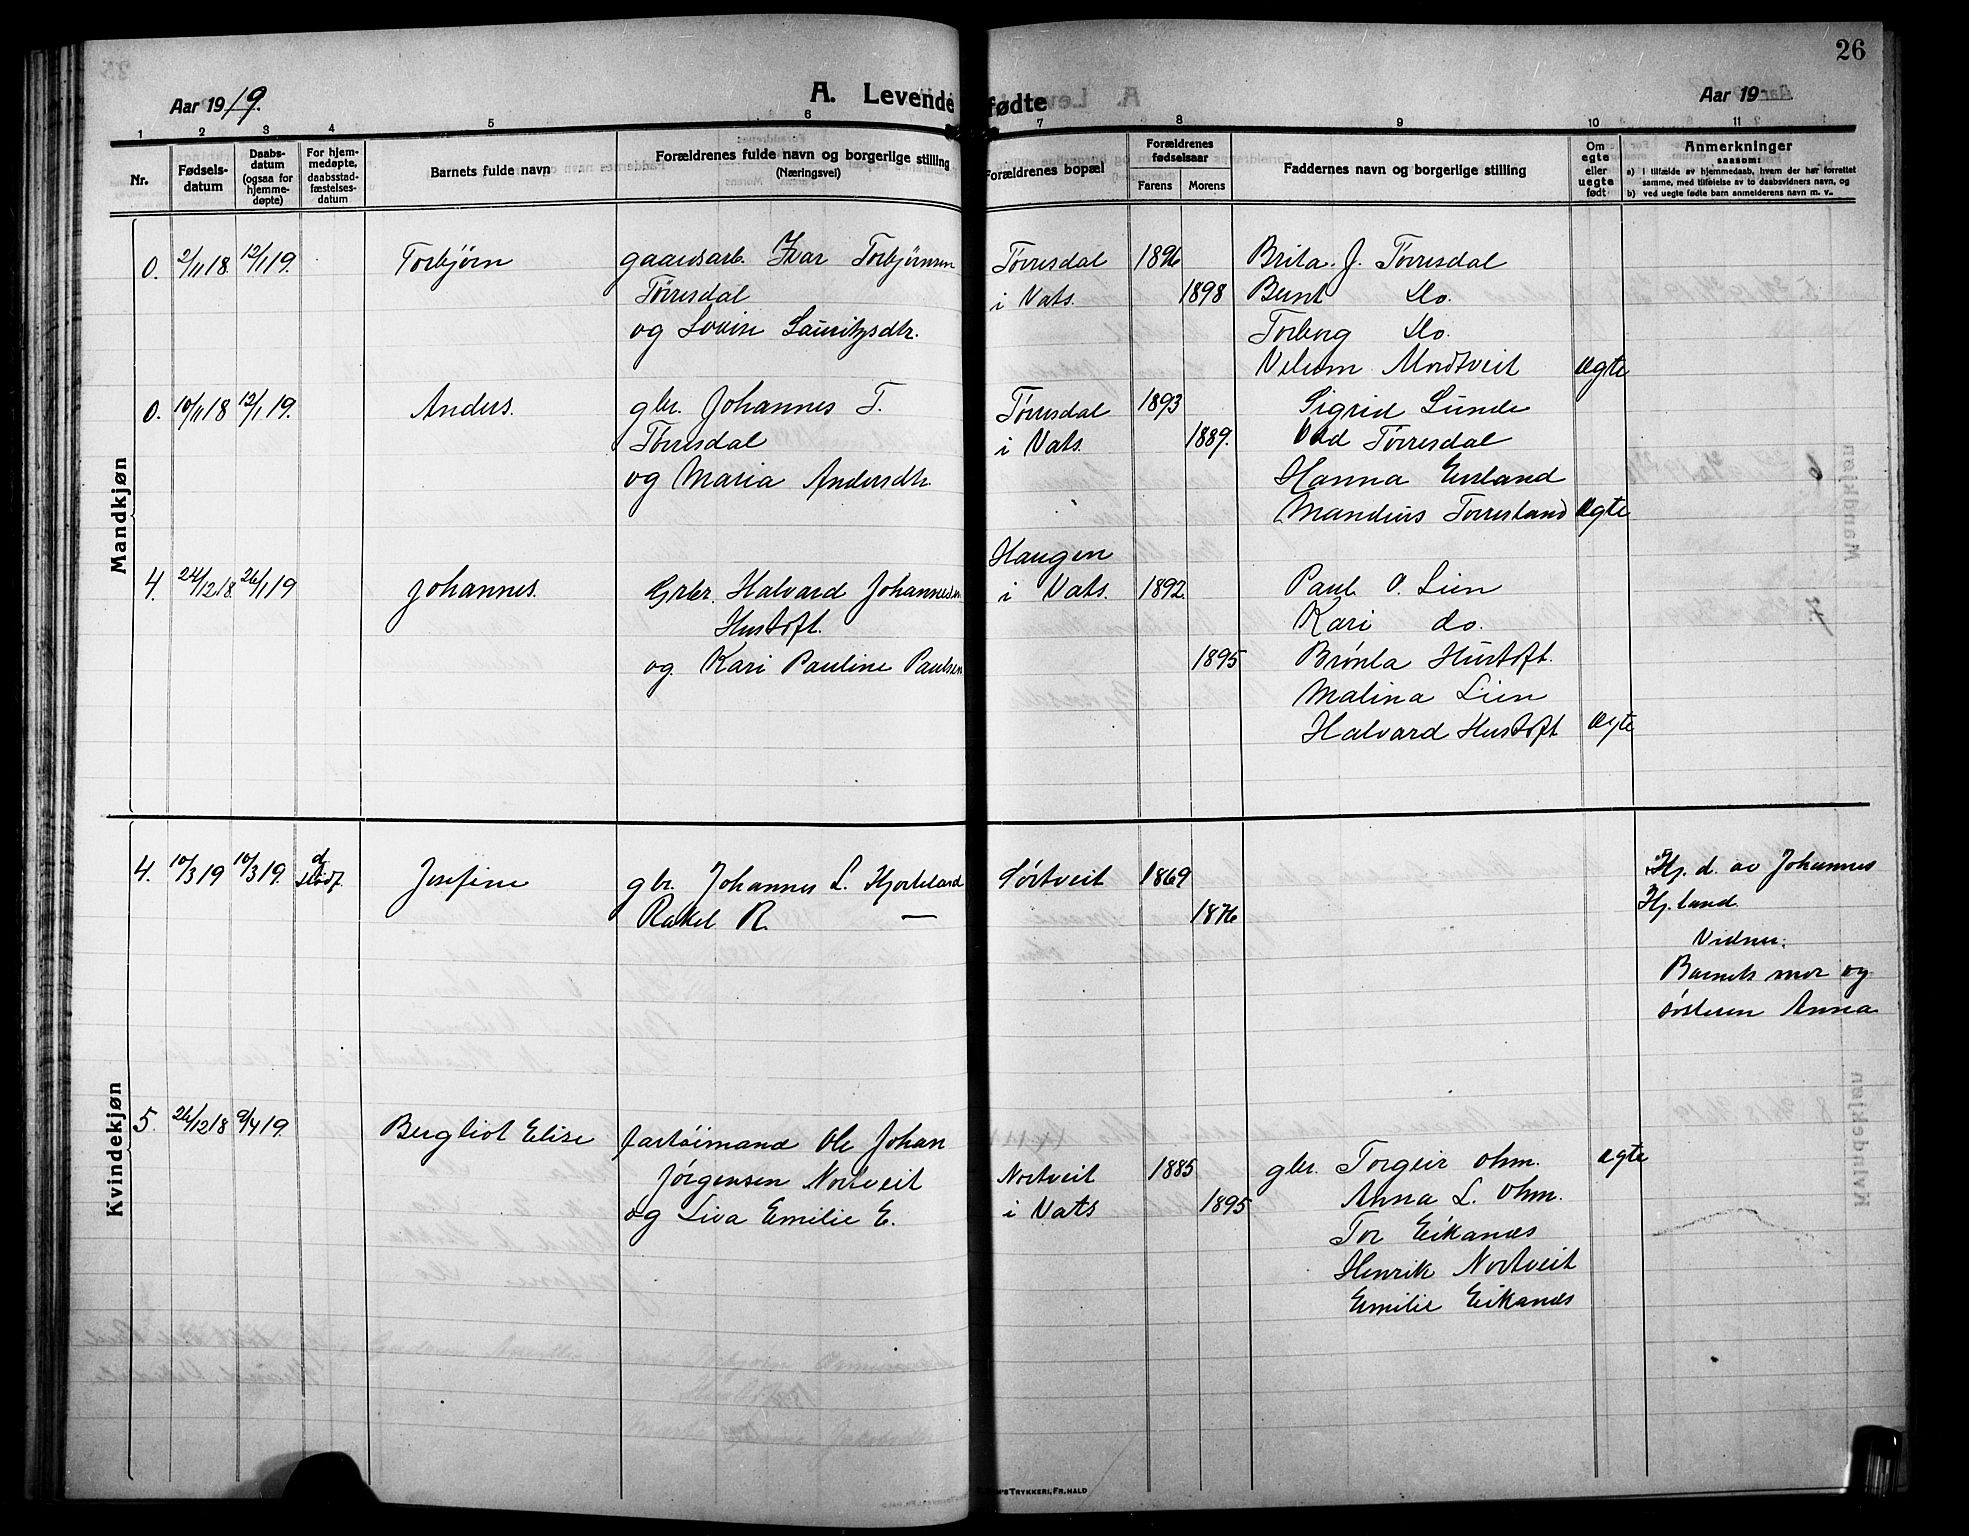 26
Aar 1919.
A. Levende fødte
Aar 19
1 2 3 4 5 6 7 8 9 10 11
Nr.
Fødsels-
datum
Daabs-
datum
(ogsaa for
hjemme-
døpte)
For hjem-
medøpte,
daabsstad-
fæstelses-
datum
Barnets fulde navn
Forældrenes fulde navn og borgerlige stilling
(Næringsvei)
Forældrenes bopæl
Forældrenes
fødselsaar
Farens Morens
Faddernes navn og borgerlige stilling
Om
egte
eller
uegte
født
Anmerkninger
saasom:
a) i tilfælde av hjemmedaab, hvem der har forrettet
samme, med tilføielse av to daabsvidners navn, og
b) ved uegte fødte barn anmelderens navn m. v..
Mandkjøn
0. 2/11 18. 12/1 19. Torbjørn gaardsarb. Ivar Torbjørnsen Tørresdal 1896 Brita. J. Tørresdal
Tørresdal i Vats. 1898 Bernt Do.
og Lovise Lauritzsdtr. Torborg Do.
Mordtveit Ægte
0. 10/11 18 12/1 19. Anders. gbr. Johannes T. Tørresdal 1893 Sigrid Lunde
Tørresdal i Vats. 1889. Odd Tørresdal
og Maria Andersdtr. Hanna
Mandius Torresland Ægte
Haugen
4. 24/12 18. 26/1 19 Johannes. Grbr. Halvard Johannesen i Vats. 1892. Paul O. Lien
Hustoft. Kari do.
og Kari Pauline Paulsen 1895 Brønla Hustoft.
Malina Lien
Halvard Hustoft Ægte
Kvindekjøn
4. 10/3 19 10/3 19. d. Josefine gbr. Johannes L. Hjorteland Sørtveit 1869 Hj. d. av Johannes
Rakel R. — 1876 Hj.land.
Vidner:
Barnets mor og
søsteren Anna
5. 24/12 18 9/4 19. Bergliot Elise fartøimand Ole Johan
Jørgensen Nortveit Nortveit 1885 gbr. Torgeir Ohm. Ægte
og Liva Emilie E. i Vats 1895 Anna L. Ohm.
Tor Eikanæs
Henrik Nortveit
Emilie Eikanæs
TRYKKERI, FR. HALD